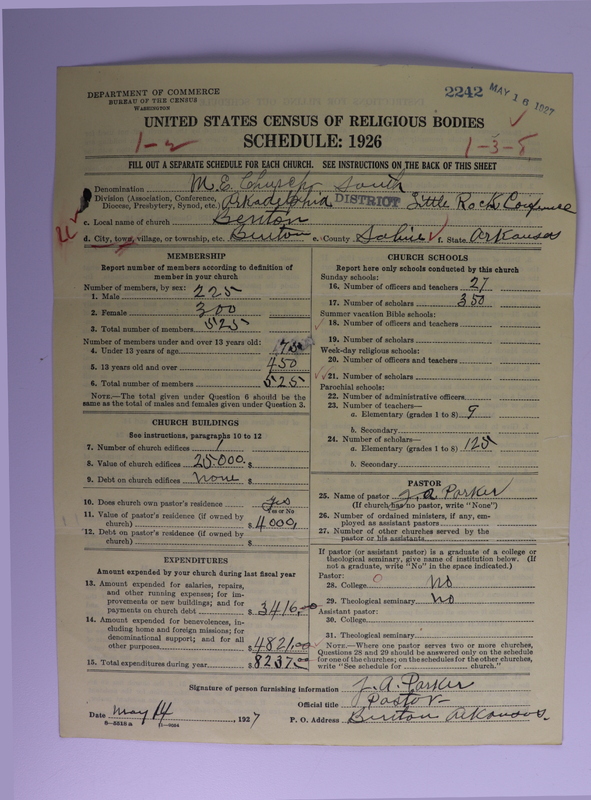 DEPARTMENT OF COMMERCE
BUREAU OF THE CENSUS
WASHINGTON
2242 MAY 16 1927
UNITED STATES CENSUS OF RELIGIOUS BODIES
SCHEDULE: 1926
1-2 1-3-5
FILL OUT A SEPARATE SCHEDULE FOR EACH CHURCH. SEE INSTRUCTIONS ON THE BACK OF THIS SHEET
Denomination M. E. Church, South
Division (Association, Conference, Diocese, Presbytery, Synod, etc.) Arkadelphia DISTRICT Little Rock Conference
c. Local name of church Benton
d. City, town, village, or township, etc. Benton e. County Saline f. State Arkansas
MEMBERSHIP
Report number of members according to definition of
member in your church
Number of members, by sex:
1. Male 225
2. Female 300
3. Total number of members 525
Number of members under and over 13 years old:
4. Under 13 years of age 75
5. 13 years old and over 450
6. Total number of members 525
NOTE.—The total given under Question 6 should be
same as the total of males and females given under Question 3.
CHURCH BUILDINGS
See instructions, paragraphs 10 to 12
7. Number of church edifices 1
8. Value of church edifices 25000 $
9. Debt on church edifices none $
10. Does church own pastor's residence yes
Yes or No
11. Value of pastor's residence (if owned by
church) $ 4000,
12. Debt on pastor's residence (if owned by
church) $
EXPENDITURES
Amount expended by your church during last fiscal year
13. Amount expended for salaries, repairs,
and other running expenses; for im-
provements or new buildings; and for
payments on church debt $ 3416.00
14. Amount expended for benevolences, in-
cluding home and foreign missions; for
denominational support; and for all
other purposes $ 4821.00
15. Total expenditures during year $ 8237.00
CHURCH SCHOOLS
Report here only schools conducted by this church
Sunday schools:
16. Number of officers and teachers 27
17. Number of scholars 350
Summer vacation Bible schools:
18. Number of officers and teachers
19. Number of scholars
Week-day religious schools:
20. Number of officers and teachers
21. Number of scholars
Parochial schools:
22. Number of administrative officers
23. Number of teachers—
a. Elementary (grades 1 to 8) 9
b. Secondary
24. Number of scholars—
a. Elementary (grades 1 to 8) 125
b. Secondary
PASTOR
25. Name of pastor J. A. Parker
(If church has no pastor, write "None")
26. Number of ordained ministers, if any, em-
ployed as assistant pastors
27. Number of other churches served by the
pastor or his assistants
If pastor (or assistant pastor) is a graduate of a college or
theological seminary, give name of institution below. (If
not a graduate, write "No" in the space indicated.)
Pastor:
28. College No
29. Theological seminary No
Assistant pastor:
30. College
31. Theological seminary
NOTE.—Where one pastor serves two or more churches,
Questions 28 and 29 should be answered only on the schedule
for one of the churches; on the schedules for the other churches,
write "See schedule for church."
Signature of person furnishing information J. A. Parker
Official title Pastor
Date May 14, 1927 P. O. Address Benton Arkansas.